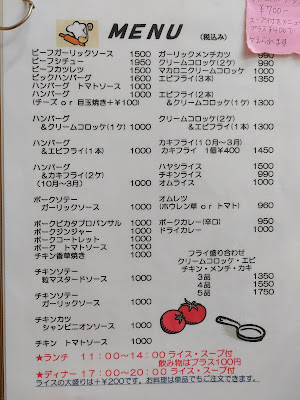 MENU
(税込み)
ビーフガーリックソース 1500
ビーフシチュー 1950
ビーフカッレツ 1500
ビックハンバーグ 1600
ハンバーグ トマトソース 1000
ハンバーグ 1000
(チーズ or 目玉焼き+¥100)
ハンバーグ
&クリームコロッケ(1ケ) 1300
ハンバーグ
&エビフライ(1本) 1300
ハンバーグ
&カキフライ(2ケ) 1300
(10月~3月)
ポークソテー
ガーリックソース 1000
ポークピカタプロバンサル 1000
ポークジンジャー 1000
ポークコートレット 1000
ポーク トマトソース 1000
チキン香草焼き 1000
チキンソテー
粒マスタードソース 1000
チキンソテー
ガーリックソース 1000
チキンカツ
シャンピニオンソース 1000
チキン トマトソース 1000
ガーリックメンチカツ
クリームコロッケ(2ケ) 990
マカロニクリームコロッケ 1000
エビフライ(3本) 1350
エビフライ(2本)
&クリームコロッケ(1ケ) 1300
クリームコロッケ(2ケ)
&エビフライ(1本) 1300
カキフライ(10月~3月)
カキフライ 1個¥400 1450
ハヤシライス 1500
チキンライス 990
オムライス 1000
オムレツ
(ホウレン草 or トマト) 960
ポークカレー(辛口) 950
ドライカレー 1000
フライ盛り合わせ
クリームコロッケ・エビ
チキン・メンチ・カキ
3品 1350
4品 1550
5品 1750
★ランチ 11:00~14:00 ライス・スープ付
飲み物はプラス100円
★ディナー 17:00~20:00 ライス・スープ付
ライスの大盛りは+¥200です。お料理は単品でもご注文できます。
¥700-